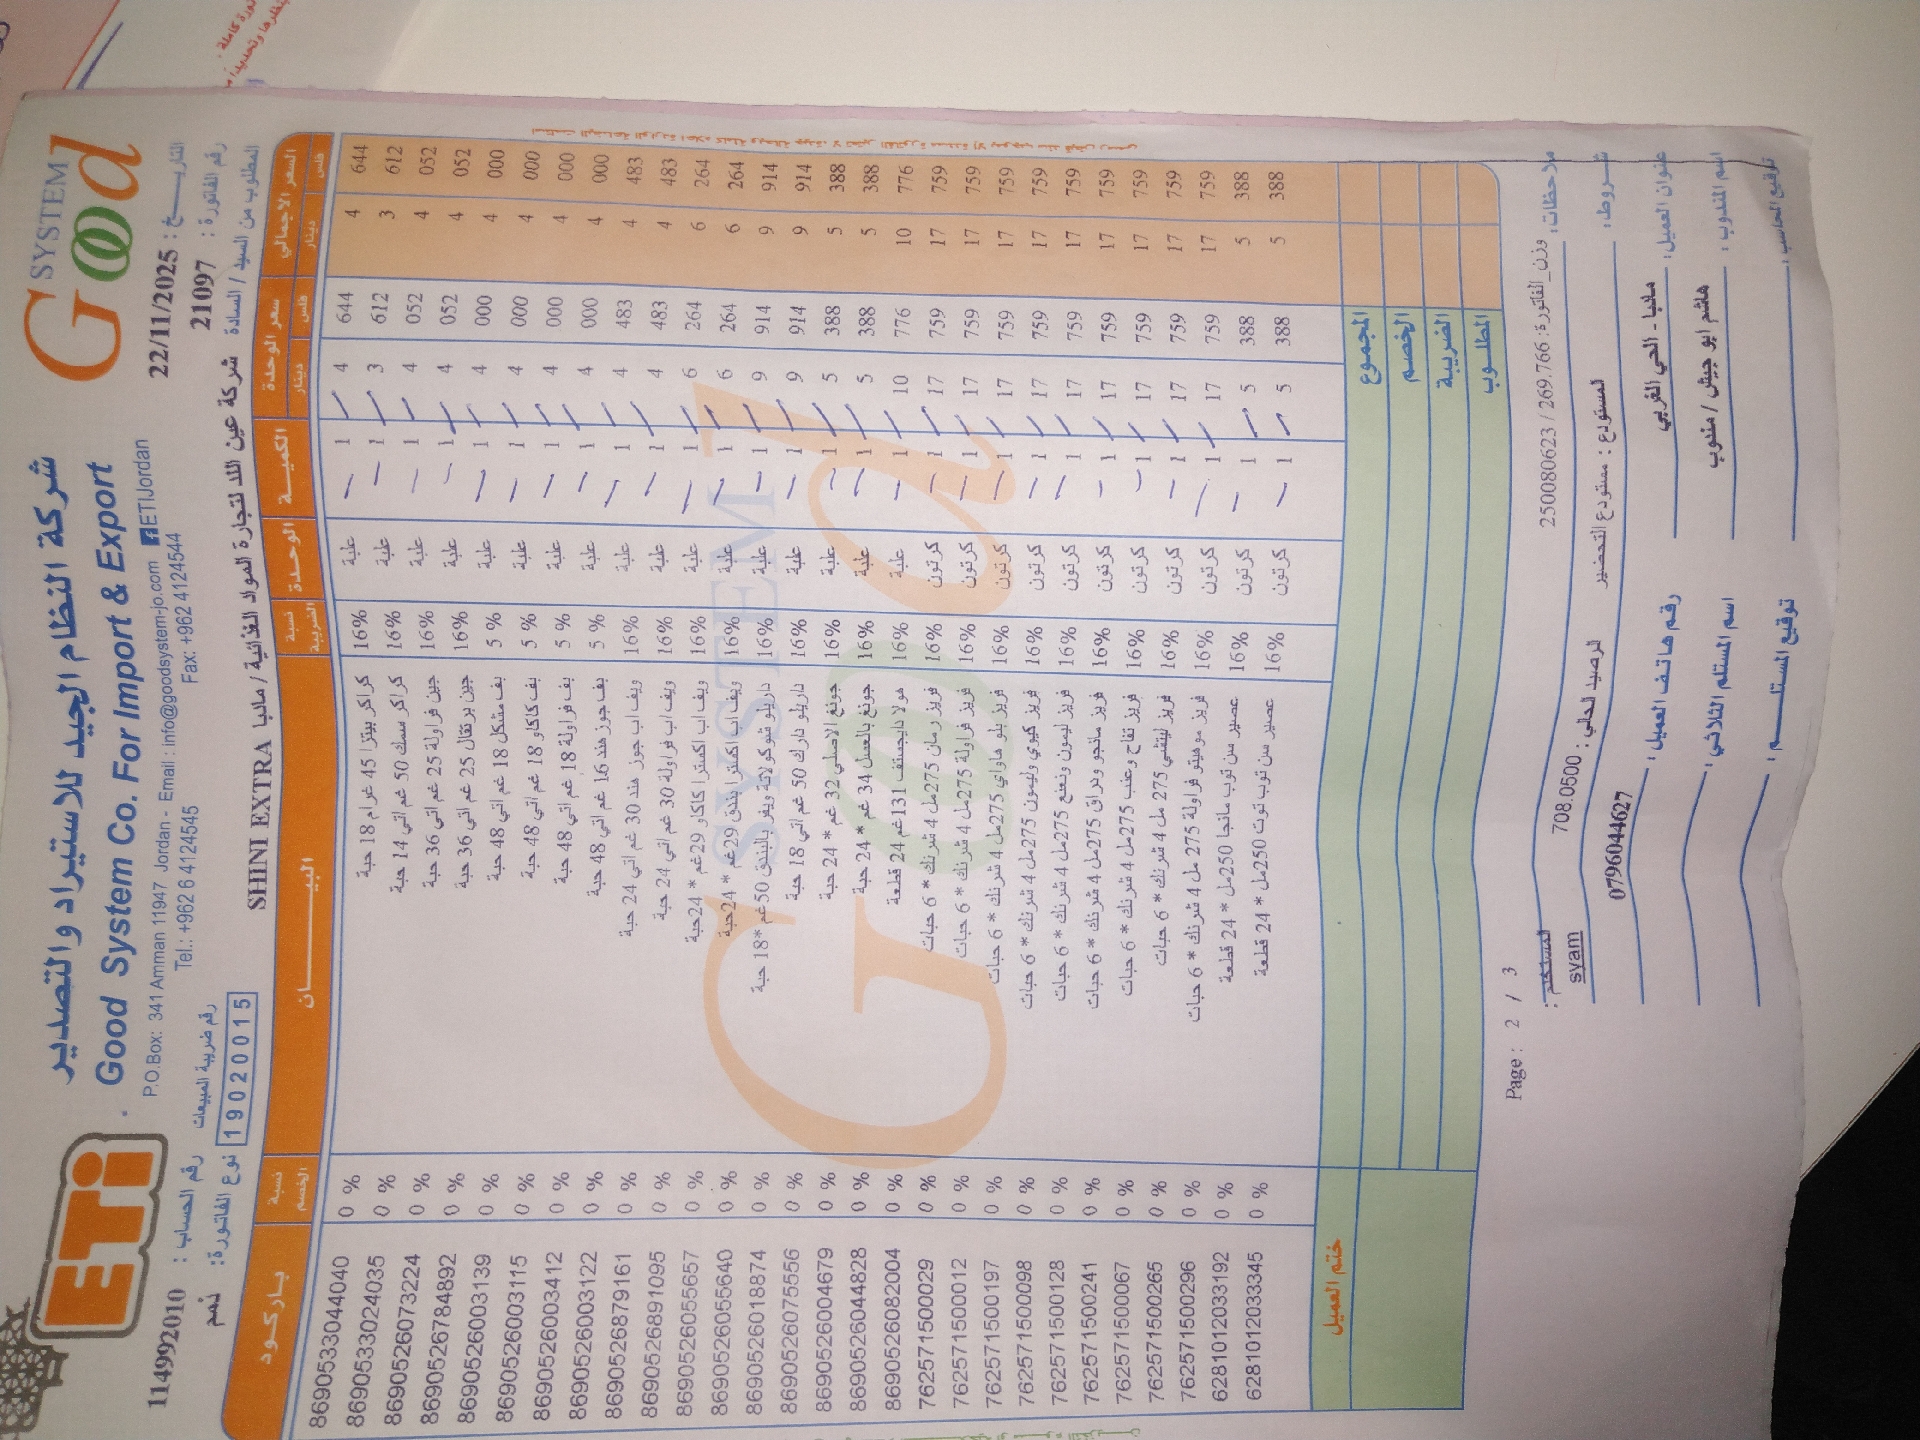 ETi
شركة النظام الجيد للاستيراد والتصدير
Good System Co. For Import & Export
P.O.Box: 341 Amman 11947 Jordan - Email : info@goodsystem-jo.com ETIJordan
Tel.: +962 6 4124545 Fax: +962 4124544
Good SYSTEM
التاريـــخ : 22/11/2025
رقم الفاتورة : 21097
المطلوب من السيد / السادة شركة عين اللا لتجارة المواد الغذائية / مادبا SHINI EXTRA
رقم الحساب : 114992010
رقم ضريبة المبيعات 19020015
نوع الفاتورة: ذمم
باركود نسبة الخصم البيـــــان نسبة الضريبة الوحدة الكميـة سعر الوحدة السعر الاجمالي
دينار فلس دينار فلس
8690533044040 0 % كراكر بيتزا 45 غرام 18 حبة 16% علبة 1 4 644 4 644
8690533024035 0 % كراكر سمك 50 غم اتي 14 حبة 16% علبة 1 3 612 3 612
8690526073224 0 % جين فراولة 25 غم اتي 36 حبة 16% علبة 1 4 052 4 052
8690526784892 0 % جين برتقال 25 غم اتي 36 حبة 16% علبة 1 4 052 4 052
8690526003139 0 % بف مشكل 18 غم اتي 48 حبة 5 % علبة 1 4 000 4 000
8690526003115 0 % بف كاكاو 18 غم اتي 48 حبة 5 % علبة 1 4 000 4 000
8690526003412 0 % بف فراولة 18 غم اتي 48 حبة 5 % علبة 1 4 000 4 000
8690526003122 0 % بف جوز هند 16 غم اتي 48 حبة 5 % علبة 1 4 000 4 000
8690526879161 0 % ويف اب جوز هند 30 غم اتي 24 حبة 16% علبة 1 4 483 4 483
8690526891095 0 % ويف اب فراولة 30 غم اتي 24 حبة 16% علبة 1 4 483 4 483
8690526055657 0 % ويف اب اكسترا كاكاو 29غم * 24حبة 16% علبة 1 6 264 6 264
8690526055640 0 % ويف اب اكسترا بندق 29غم * 24حبة 16% علبة 1 6 264 6 264
8690526018874 0 % داريلو شوكولاتة ويفر بالبندق 50غم *18 حبة 16% علبة 1 9 914 9 914
8690526075556 0 % داريلو دارك 50 غم اتي 18 حبة 16% علبة 1 9 914 9 914
8690526004679 0 % جونغ الاصلي 32 غم * 24 حبة 16% علبة 1 5 388 5 388
8690526044828 0 % جونغ بالعسل 34 غم * 24 حبة 16% علبة 1 5 388 5 388
8690526082004 0 % هولا دايجستف 131غم 24 قطعة 16% علبة 1 10 776 10 776
7625715000029 0 % فريز رمان 275مل 4 شرنك * 6 حبات 16% كرتون 1 17 759 17 759
7625715000012 0 % فريز فراولة 275مل 4 شرنك * 6 حبات 16% كرتون 1 17 759 17 759
7625715000197 0 % فريز بلو هاواي 275مل 4 شرنك * 6 حبات 16% كرتون 1 17 759 17 759
7625715000098 0 % فريز كيوي وليمون 275مل 4 شرنك * 6 حبات 16% كرتون 1 17 759 17 759
7625715000128 0 % فريز ليمون ونعنع 275مل 4 شرنك * 6 حبات 16% كرتون 1 17 759 17 759
7625715000241 0 % فريز مانجو ودراق 275مل 4 شرنك * 6 حبات 16% كرتون 1 17 759 17 759
7625715000067 0 % فريز تفاح وعنب 275مل 4 شرنك * 6 حبات 16% كرتون 1 17 759 17 759
7625715000265 0 % فريز ليتشي 275 مل 4 شرنك * 6 حبات 16% كرتون 1 17 759 17 759
7625715000296 0 % فريز موهيتو فراولة 275 مل 4 شرنك * 6 حبات 16% كرتون 1 17 759 17 759
6281012033192 0 % عصير من توب مانجا 250مل * 24 قطعة 16% كرتون 1 5 388 5 388
6281012033345 0 % عصير من توب توت 250مل * 24 قطعة 16% كرتون 1 5 388 5 388
ختم العميل
المجموع
الخصم
الضريبة
المطلوب
Page : 2 / 3
ملاحظات: وزن_الفاتورة: 269.766 / 250080623
المستخدم : syam
الرصيد الحالي : 708.0500
شروط: المستودع : مستودع التحضير
عنوان العميل: مادبا - الحي الغربي
رقم هاتف العميل: 0796044627
اسم المندوب : هاشم ابو جيش / مندوب
اسم المستلم الثلاثي:
توقيع المحاسب :
توقيع المستلـم :